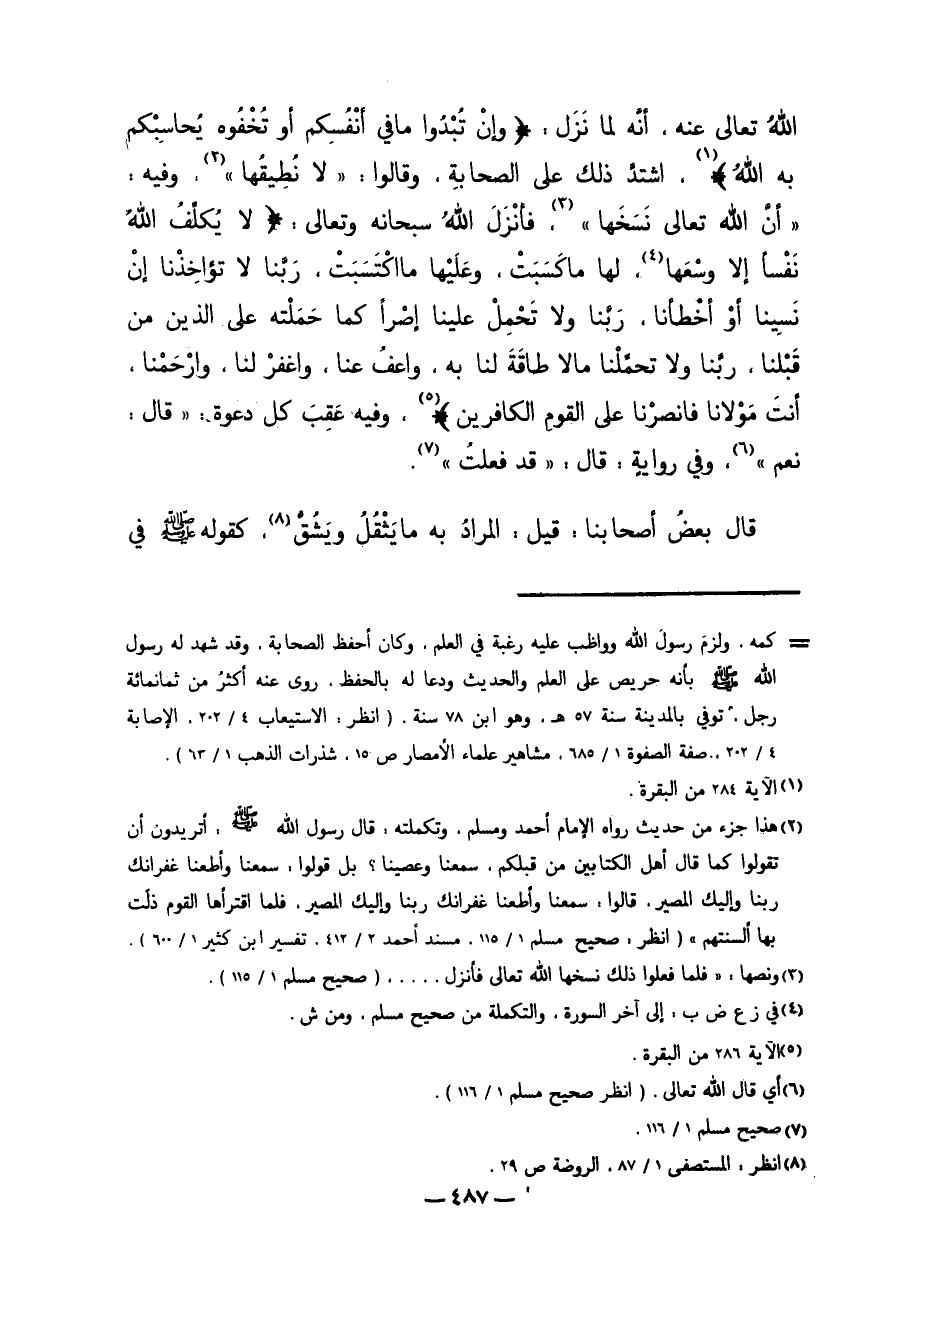 اللهُ تعالى عنه ، أنَّه لما نَزَل : ﴿ وإنْ تُبْدُوا مافي أنْفُسِكم أو تُخْفُوه يُحاسِبْكم
به اللهُ ﴾(١) ، اشتدَّ ذلك على الصحابةِ ، وقالوا : « لا نُطِيقُها »(٢)، وفيه :
« أنَّ الله تعالى نَسَخَها »(٣)، فأنْزَلَ اللهُ سبحانه وتعالى : ﴿ لا يُكلّفُ اللهُ
نَفْساً إلا وسْعَها(٤)، لها ماكَسَبَتْ ، وعَلَيْها مااكْتَسَبَتْ ، رَبَّنا لا تؤاخِذْنا إنْ
نَسِينا أوْ أخْطأنا ، رَبَّنا ولا تَحْمِلْ علينا إصْراً كما حَمَلْته على الذين من
قَبْلنا ، ربَّنا ولا تحمَّلْنا مالا طاقَةَ لنا به ، واعفُ عنا ، واغفرْ لنا ، وارْحَمْنا ،
أنتَ مَوْلانا فانصرْنا على القومِ الكافرين ﴾(٥) ، وفيه عَقِبَ كل دعوة : « قال :
نعم »(٦)، وفي روايةٍ : قال : « قد فعلتُ »(٧).
قال بعضُ أصحابنا : قيل : المرادُ به مايَثْقُلُ ويَشُقُّ(٨)، كقوله ﷺ في
= كمه ، ولزمَ رسولَ الله وواظب عليه رغبة في العلم ، وكان أحفظ الصحابة ، وقد شهد له رسول
الله ﷺ بأنه حريص على العلم والحديث ودعا له بالحفظ ، روى عنه أكثرُ من ثمانمائة
رجل ، توفي بالمدينة سنة ٥٧ هـ ، وهو ابن ٧٨ سنة . ( انظر : الاستيعاب ٤ / ٢٠٢ ، الإصابة
٤ / ٢٠٢ ، صفة الصفوة ١ / ٦٨٥ ، مشاهير علماء الأمصار ص ١٥ ، شذرات الذهب ١ / ٦٣ ) .
(١) الآية ٢٨٤ من البقرة .
(٢) هذا جزء من حديث رواه الإمام أحمد ومسلم ، وتكملته : قال رسول الله ﷺ : أتريدون أن
تقولوا كما قال أهل الكتابين من قبلكم ، سمعنا وعصينا ؟ بل قولوا : سمعنا وأطعنا غفرانك
ربنا وإليك المصير ، قالوا : سمعنا وأطعنا غفرانك ربنا وإليك المصير ، فلما اقترأها القوم ذلّت
بها ألسنتهم » ( انظر : صحيح مسلم ١ / ١١٥ ، مسند أحمد ٢ / ٤١٢ ، تفسير ابن كثير ١ / ٦٠٠ ) .
(٣) ونصها : « فلما فعلوا ذلك نسخها الله تعالى فأنزل . . . . . ( صحيح مسلم ١ / ١١٥ ) .
(٤) في ز ع ض ب : إلى آخر السورة ، والتكملة من صحيح مسلم ، ومن ش .
(٥) الآية ٢٨٦ من البقرة .
(٦) أي قال الله تعالى . ( انظر صحيح مسلم ١ / ١١٦ ) .
(٧) صحيح مسلم ١ / ١١٦ .
(٨) انظر : المستصفى ١ / ٨٧ ، الروضة ص ٢٩ .
— ٤٨٧ —